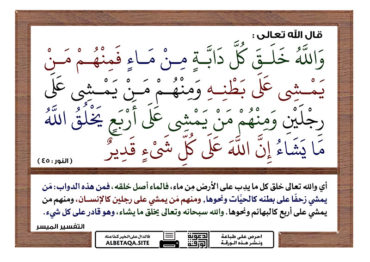 قال الله تعالى :
وَاللَّهُ خَلَقَ كُلَّ دَابَّةٍ مِنْ مَاءٍ فَمِنْهُمْ مَنْ
يَمْشِي عَلَى بَطْنِهِ وَمِنْهُمْ مَنْ يَمْشِي عَلَى
رِجْلَيْنِ وَمِنْهُمْ مَنْ يَمْشِي عَلَى أَرْبَعٍ يَخْلُقُ اللَّهُ
مَا يَشَاءُ إِنَّ اللَّهَ عَلَى كُلِّ شَيْءٍ قَدِيرٌ
( النور : ٤٥ )
أي والله تعالى خلق كل ما يدِب على الأرض مِن ماء، فالماء أصل خلقه ، فمن هذه الدواب: مَن
يمشي زحفًا على بطنه كالحيَّات ونحوها، ومنهم مَن يمشي على رجلين كالإنسـان، ومنهم من
يمشي على أربع كالبهائم ونحوها. والله سبحانه وتعالى يخلق ما يشاء، وهو قادر على كل شيء.
التفسير الميسر
احرص على طباعة
ونشر هذه الورقة
فالدال على الخير كفاعله
ALBETAQA.SITE